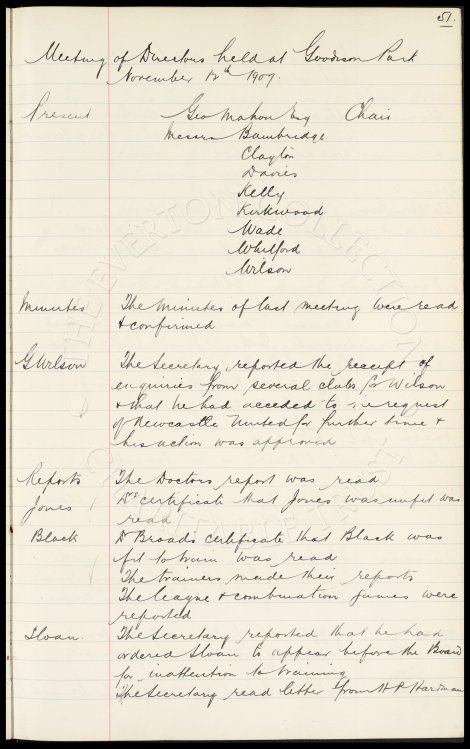 51.
Meeting of Directors held at Goodison Park
November 12th 1907.
Present Geo Mahon Esq Chair
Messrs Bainbridge
Clayton
Davies
Kelly
Kirkwood
Wade
Whitford
Wilson
Minutes The Minutes of last meeting were read
& confirmed
G Wilson The Secretary reported the receipt of
enquiries from several clubs for Wilson
& that he had acceded to the request
of Newcastle United for further time &
his action was approved
Reports The Doctors report was read
Jones Drs certificate that Jones was unfit was
read
Black Dr Broad's certificate that Black was
fit to train was read
The trainers made their reports
The league & combination games were
reported
Sloan. The Secretary reported that he had
ordered Sloan to appear before the Board
for inattention to training
The Secretary read letter from H P Hardman
THE EVERTON COLLECTION
CHARITABLE TRUST